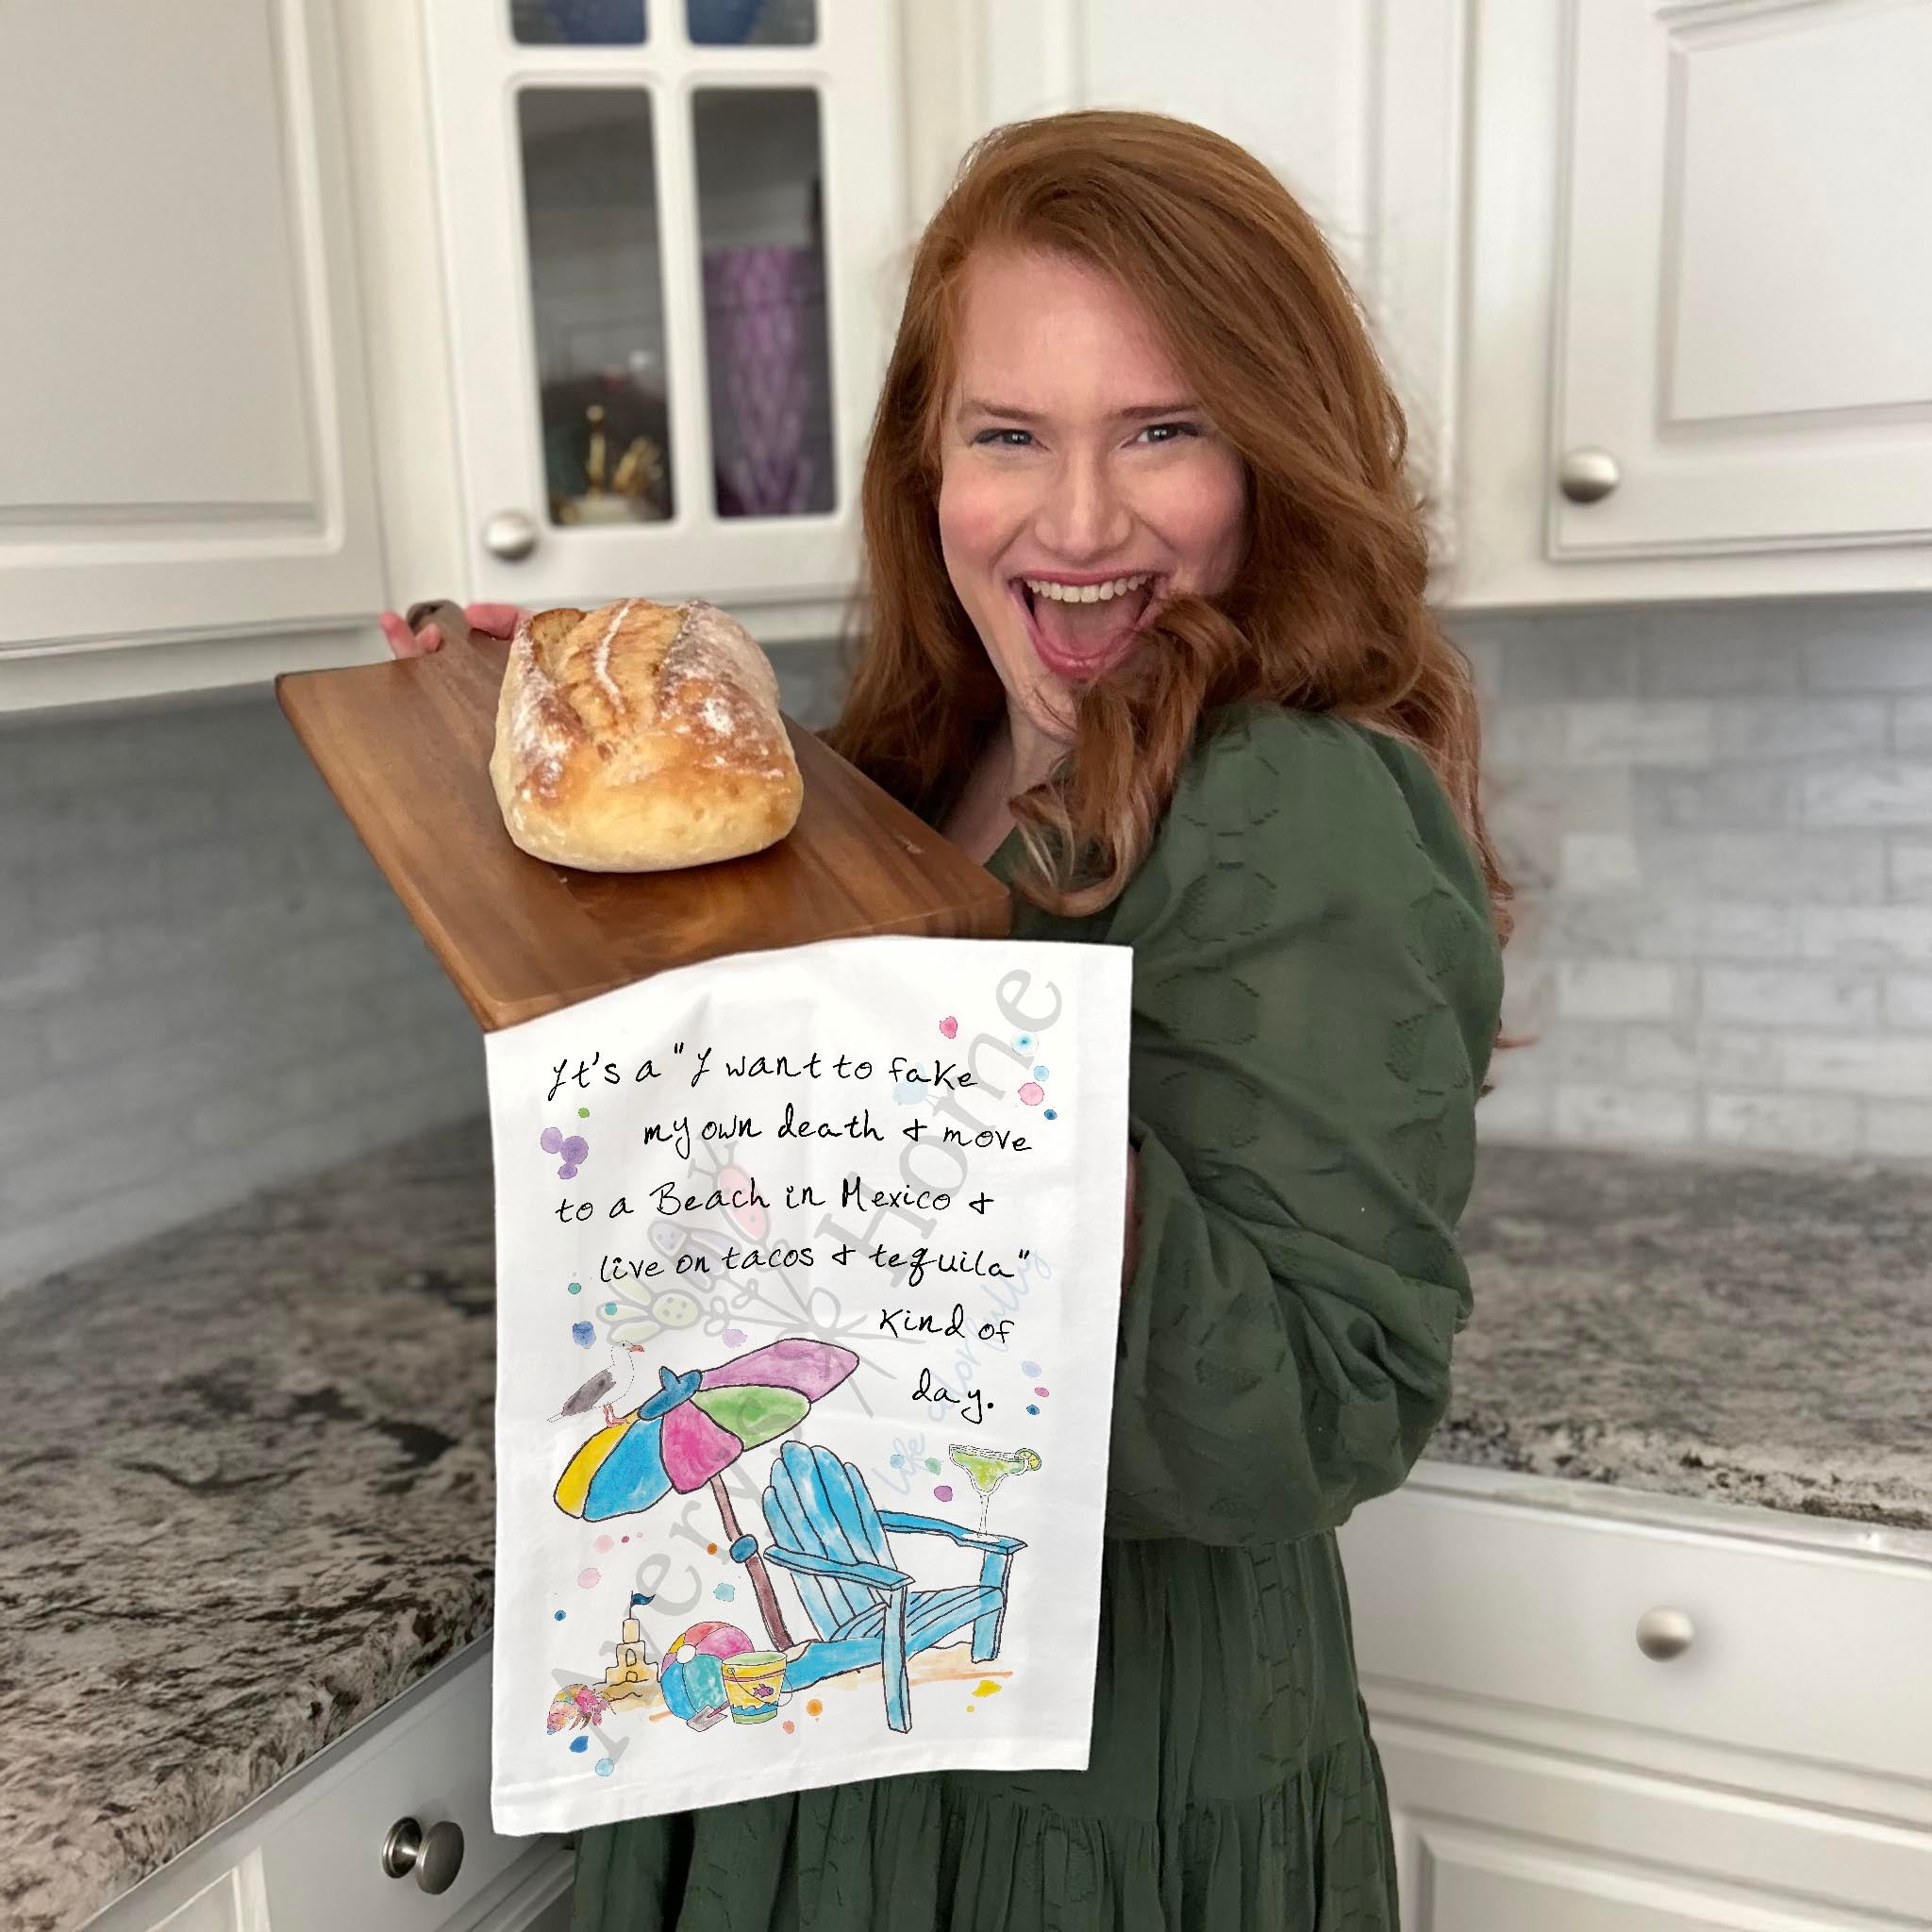 It's a "I want to fake
my own death + move
to a Beach in Mexico +
live on tacos + tequila"
Kind of
day.
Avery's Home
life adorably